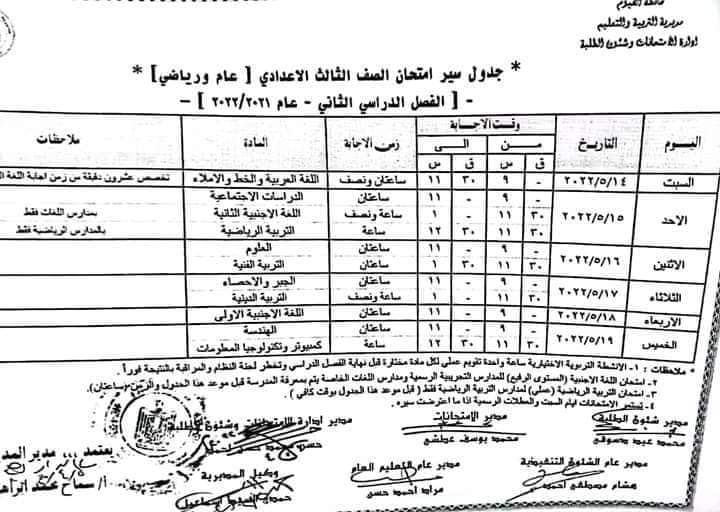 محافظة الفيوم
مديرية التربية والتعليم
إدارة الامتحانات وشئون الطلبة
* جدول سير امتحان الصف الثالث الاعدادي [ عام ورياضي ] *
- [ الفصل الدراسي الثاني - عام ٢٠٢٢/٢٠٢١ ] -
اليوم التاريخ وقت الاجابة زمن الاجابة المادة ملاحظات
من الى
ق س ق س
السبت ٢٠٢٢/٥/١٤ - ٩ ٣٠ ١١ ساعتان ونصف اللغة العربية والخط والاملاء تخصص عشرون دقيقة من زمن اجابة اللغة
الاحد ٢٠٢٢/٥/١٥ - ٩ - ١١ ساعتان الدراسات الاجتماعية
٣٠ ١١ - ١ ساعة ونصف اللغة الاجنبية الثانية بمدارس اللغات فقط
٣٠ ١١ ٣٠ ١٢ ساعة التربية الرياضية بالمدارس الرياضية فقط
الاثنين ٢٠٢٢/٥/١٦ - ٩ - ١١ ساعتان العلوم
٣٠ ١١ ٣٠ ١ ساعتان التربية الفنية
الثلاثاء ٢٠٢٢/٥/١٧ - ٩ - ١١ ساعتان الجبر والاحصاء
٣٠ ١١ - ١ ساعة ونصف التربية الدينية
الاربعاء ٢٠٢٢/٥/١٨ - ٩ - ١١ ساعتان اللغة الاجنبية الاولى
الخميس ٢٠٢٢/٥/١٩ - ٩ - ١١ ساعتان الهندسة
٣٠ ١١ ٣٠ ١٢ ساعة كمبيوتر وتكنولوجيا المعلومات
* ملاحظات : ١- الأنشطة التربوية الاختيارية ساعة واحدة تقويم عملي لكل مادة مختارة قبل نهاية الفصل الدراسي وتخطر لجنة النظام والمراقبة بالنتيجة فوراً.
٢- امتحان اللغة الاجنبية (المستوى الرفيع) للمدارس التجريبية الرسمية ومدارس اللغات الخاصة يتم بمعرفة المدرسة قبل موعد هذا الجدول والزمن (ساعتان).
٣- امتحان التربية الرياضية (عملي) لمدارس التربية الرياضية فقط ( قبل موعد هذا الجدول بوقت كافي ) .
٤ - تستمر الامتحانات أيام السبت والعطلات الرسمية اذا ما اعترضت سيره .
مدير شئون الطلبة مدير الامتحانات مدير ادارة الامتحانات وشئون الطلبة يعتمد ,,, مدير
محمد عيد دسوقي محمد يوسف عطشي
مدير عام الشئون التنفيذية مدير عام التعليم العام وكيل المديرية
هشام مصطفى احمد مراد احمد حسن حمدي السيد اسماعيل أ/ سماح محمد ابراهيم